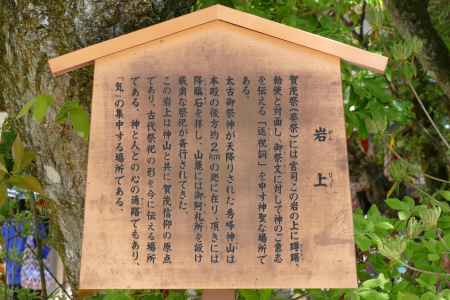 岩上
がんじょう
賀茂祭(葵祭)には宮司この岩の上に蹲踞、
勅使と対面し、御祭文に対して神の御意志
を伝える「返祝詞」を申す神聖な場所で
ある。
太古御祭神が天降りされた秀峰神山は
本殿の後方約2kmの所に在り、頂きには
降臨石を拝し、山麓には御阿礼所を設け
厳粛な祭祀が斎行されてきた。
この岩上は神山と共に賀茂信仰の原点
であり、古代祭祀の形を今に伝える場所
である。神と人との心の通路でもあり、
「気」の集中する場所である。